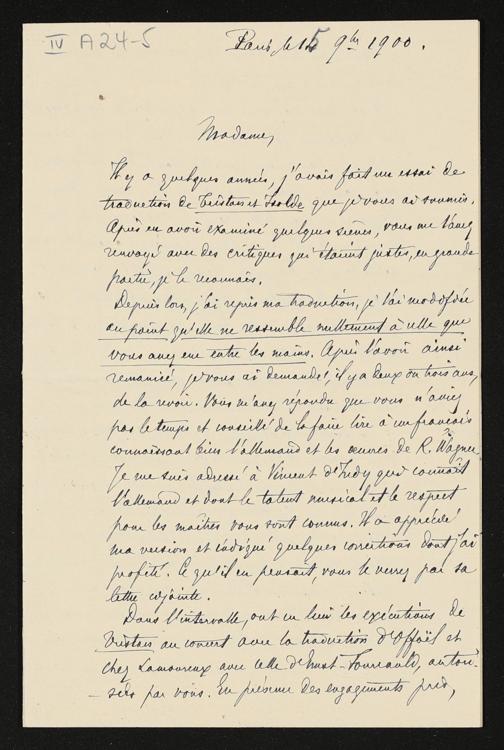 IV A24-5
Paris le 15 9bre 1900.
Madame,
Il y a quelques années, j'avais fait un essai de
traduction de Tristan et Isolde que je vous ai soumis.
Après en avoir examiné quelques scènes, vous me l'avez
renvoyé avec des critiques qui étaient justes, en grande
partie, je le reconnais.
Depuis lors, j'ai repris ma traduction, je l'ai modifiée
au point qu'elle ne ressemble nullement à celle que
vous avez eue entre les mains. Après l'avoir ainsi
remaniée, je vous ai demandé, il y a deux ou trois ans,
de la revoir. Vous m'avez répondu que vous n'aviez
pas le temps et conseillé de la faire lire à un français
connaissant bien l'allemand et les œuvres de R. Wagner.
Je me suis adressé à Vincent d'Indy qui connaît
l'allemand et dont le talent musical et le respect
pour les maîtres vous sont connus. Il a apprécié
ma version et indiqué quelques corrections dont j'ai
profité. Ce qu'il en pensait, vous le verrez par sa
lettre ci-jointe.
Dans l'intervalle, ont eu lieu les exécutions de
Tristan au concert avec la traduction d'Offoël et
chez Lamoureux avec celle d'Ernst-Fourcauld, autori-
-sées par vous. En présence des engagements pris,